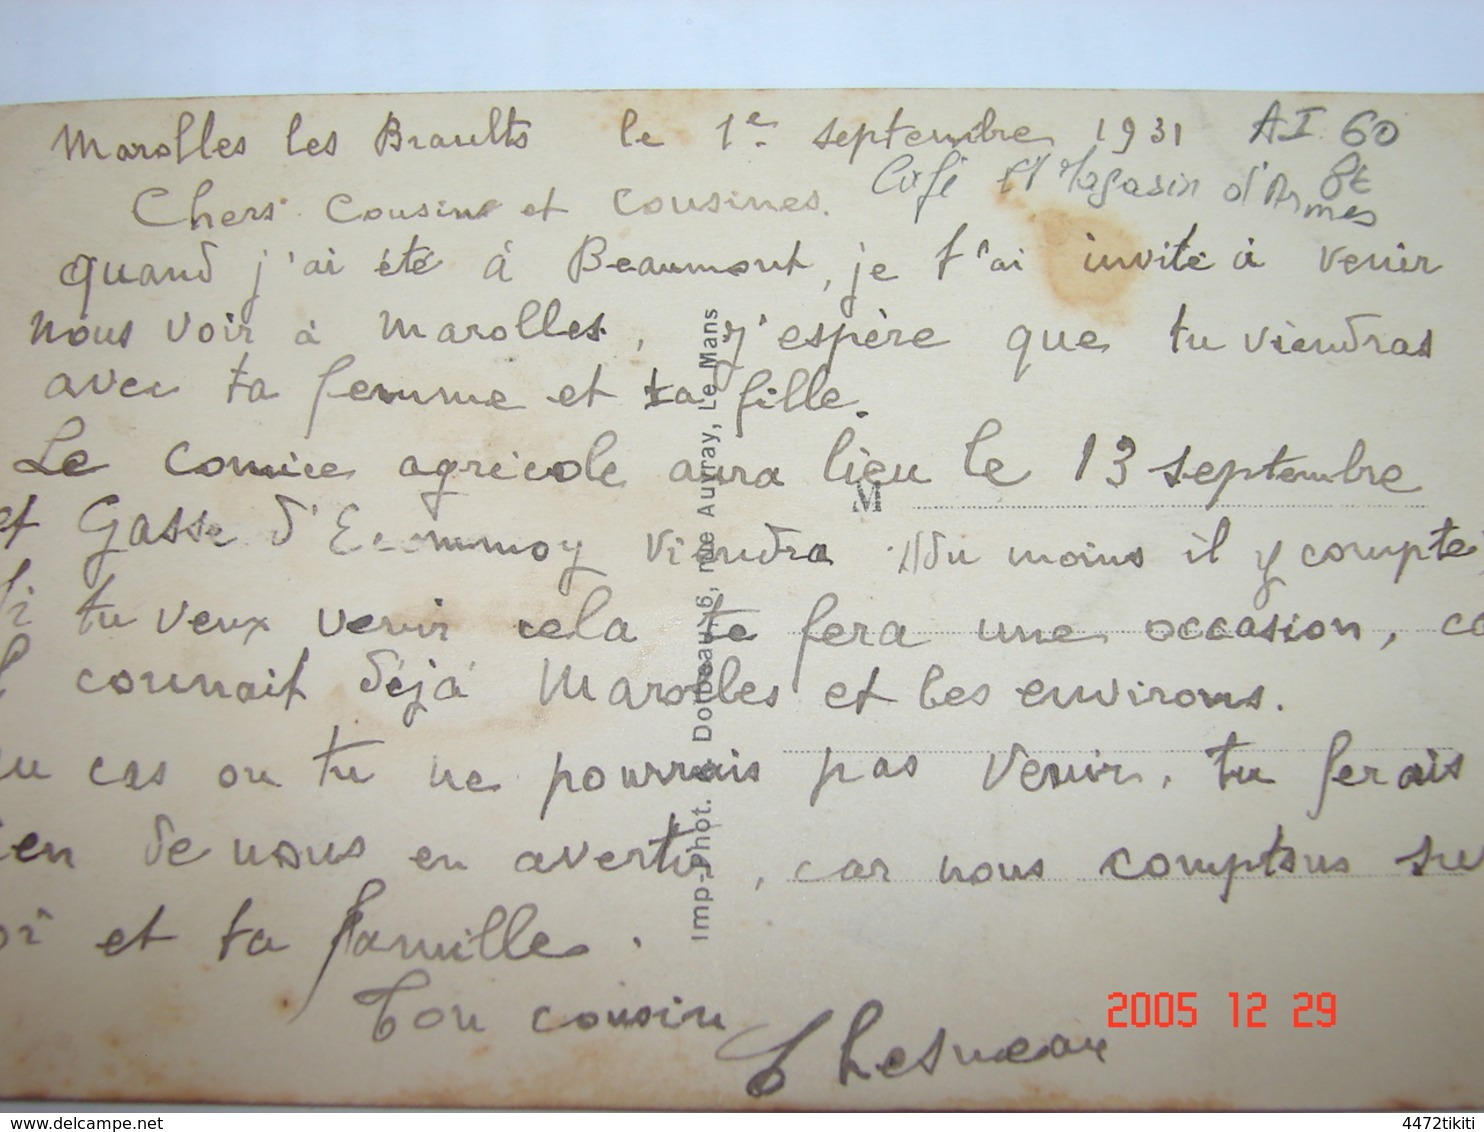 Marolles les Braults le 1e septembre 1931 AI 60
Café et Magasin d'Armes
Chers cousins et cousines.
quand j'ai été à Beaumont, je t'ai invité à venir
nous voir à Marolles, j'espère que tu viendras
avec ta femme et ta fille.
Le comice agricole aura lieu le 13 septembre
M
et Gasse d'Ecommoy viendra du moins il y compte
si tu veux venir cela te fera une occasion, ca
il connait déjà Marolles et les environs.
au cas ou tu ne pourrais pas venir, tu ferais
ien de nous en avertir, car nous comptons su
oi et ta famille.
Ton cousin
Chesneau
Imp-Phot. Dolbeau, 6, rue Auvray, Le Mans
2005 12 29
www.delcampe.net
4472tikiti